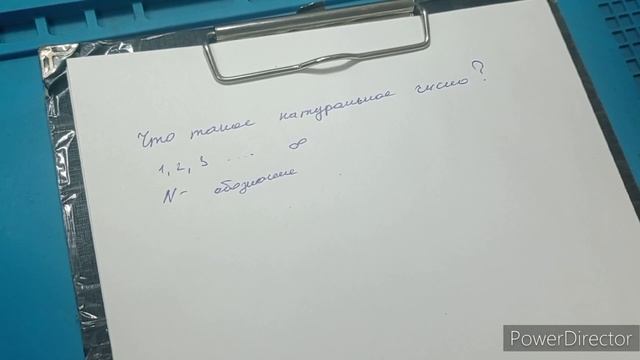 Что такое натуральное число?
1, 2, 3 .... ∞
N - обозначение
PowerDirector